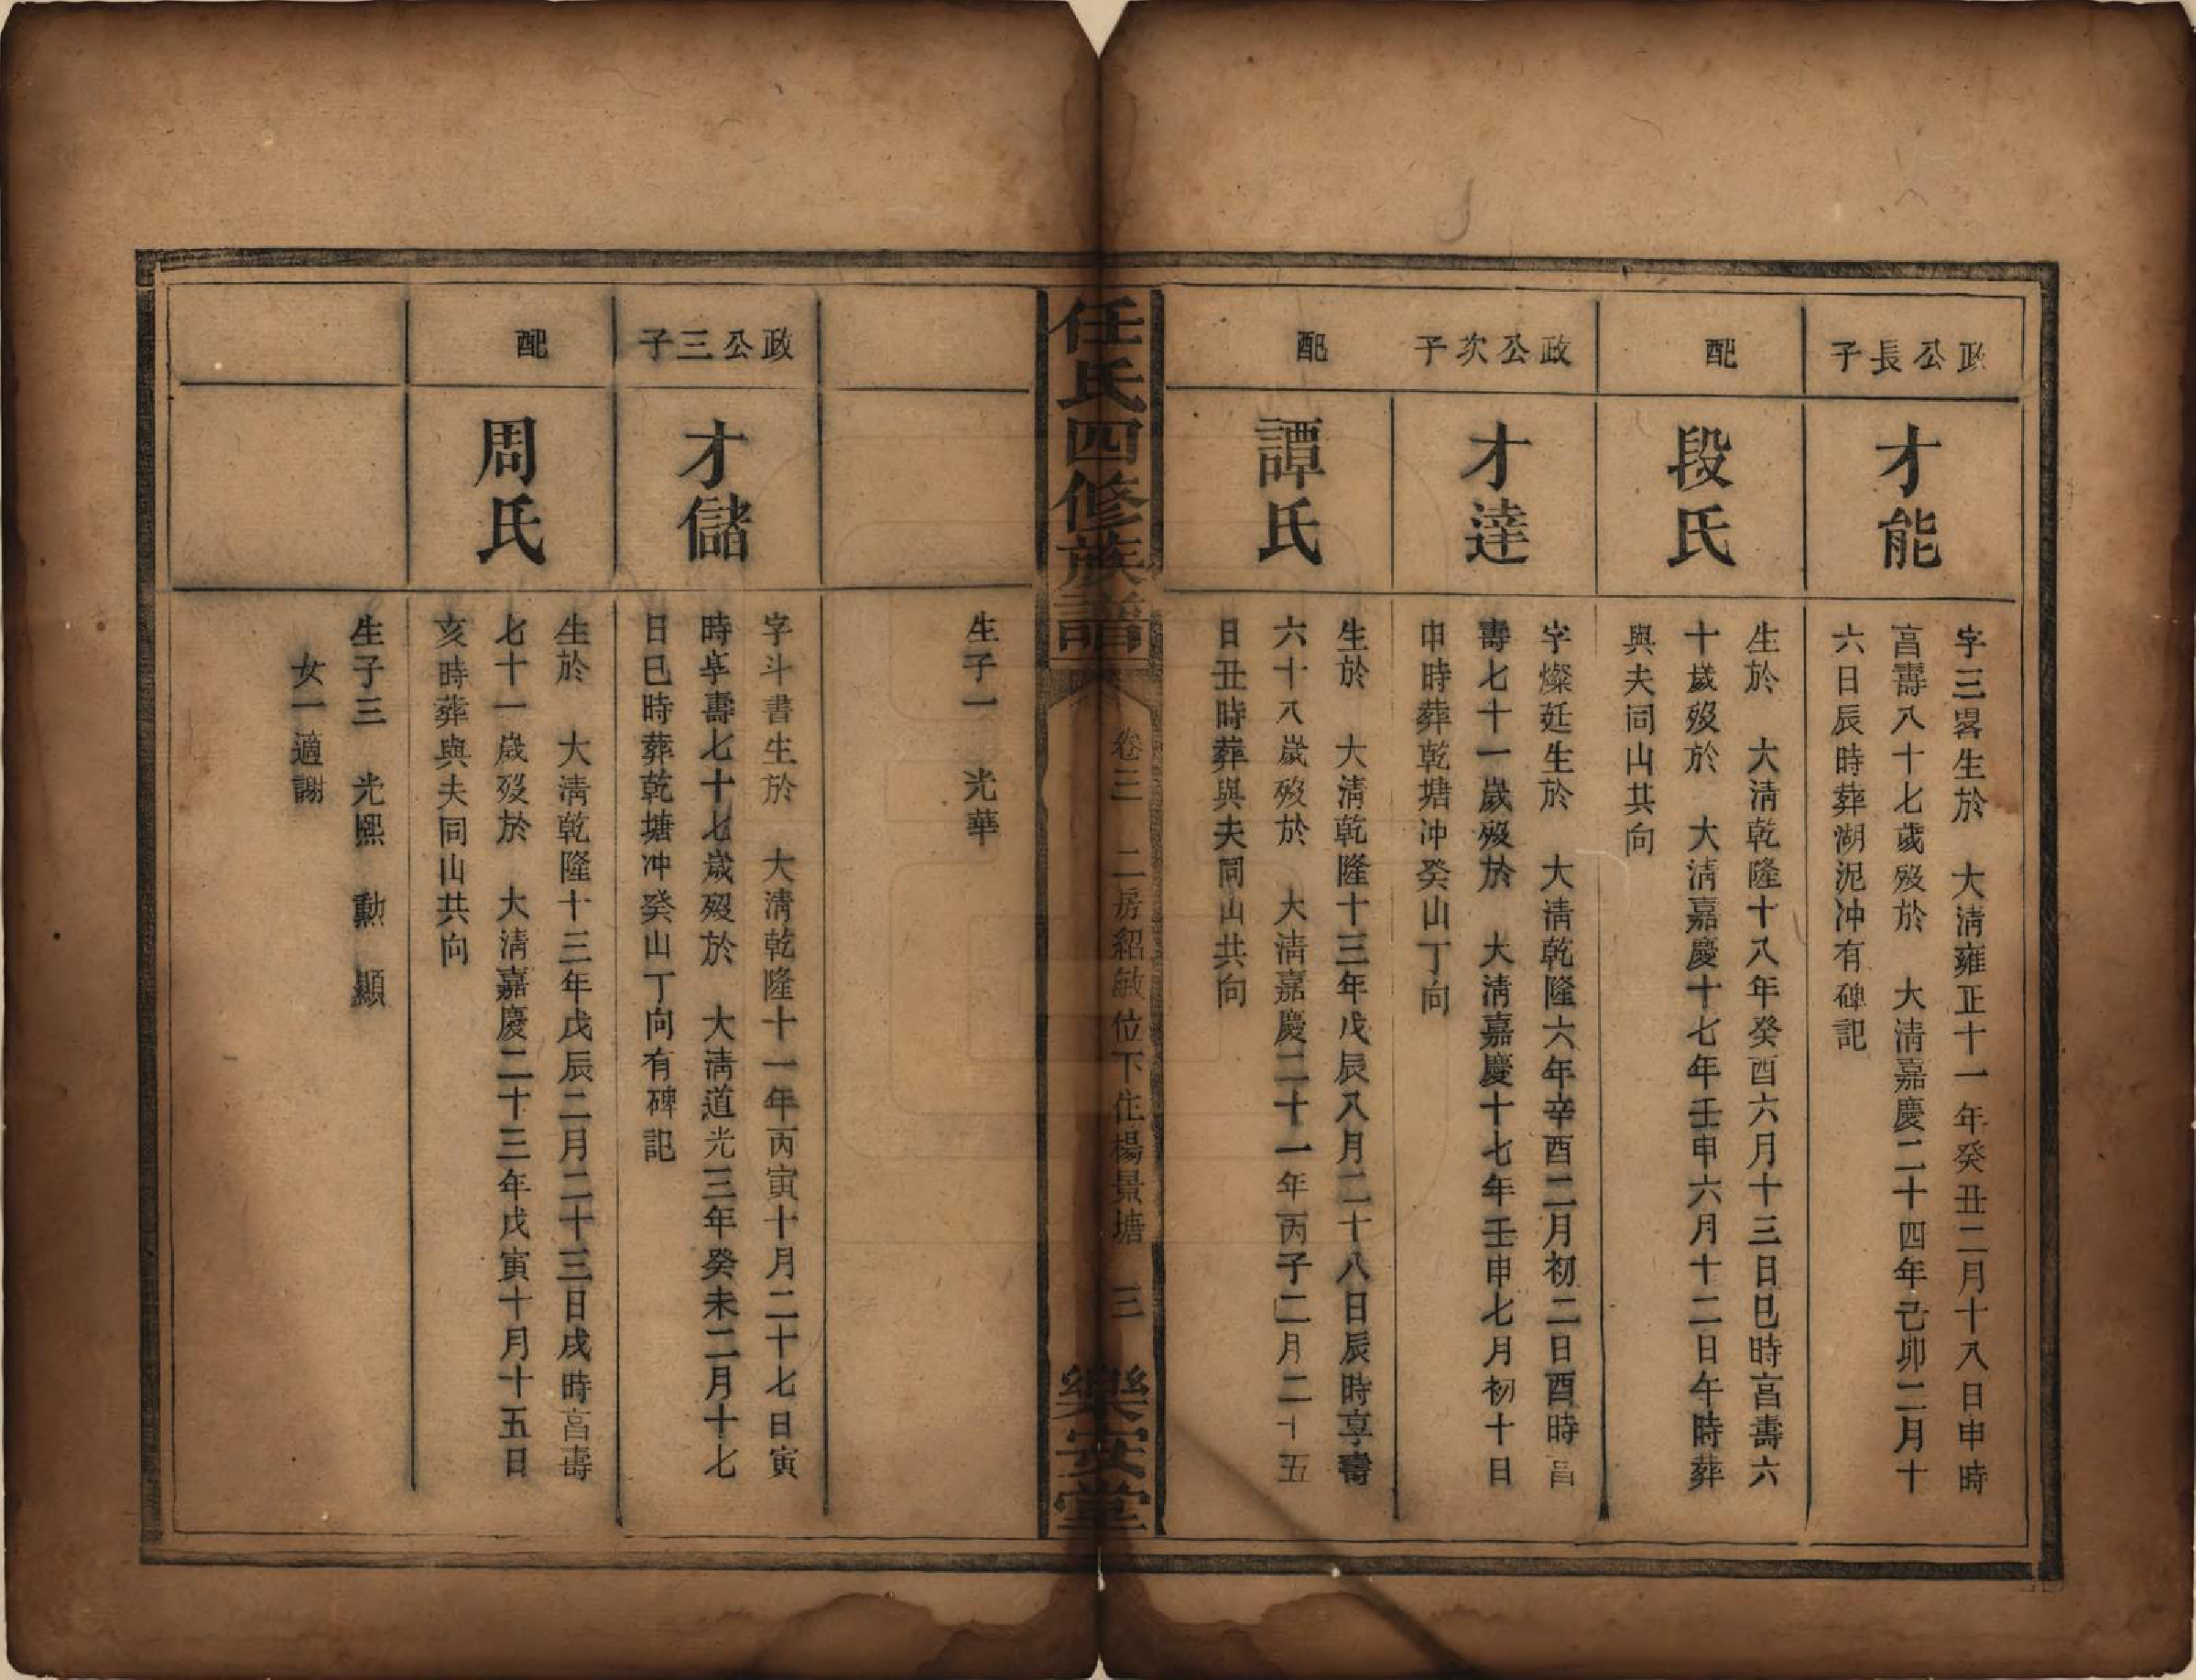 政公長子
才能
字三畧生於　大淸雍正十一年癸丑二月十八日申時
亯壽八十七歲歿於　大淸嘉慶二十四年己卯二月十
六日辰時葬湖泥冲有碑記
配
段氏
生於　大淸乾隆十八年癸酉六月十三日巳時亯壽六
十歲歿於　大淸嘉慶十七年壬申六月十二日午時葬
與夫同山共向
政公次子
才達
字燦廷生於　大淸乾隆六年辛酉二月初二日酉時亯
壽七十一歲歿於　大淸嘉慶十七年壬申七月初十日
申時葬乾塘冲癸山丁向
配
譚氏
生於　大淸乾隆十三年戊辰八月二十八日辰時享壽
六十八歲歿於　大淸嘉慶二十一年丙子二月二十五
日丑時葬與夫同山共向
任氏四修族譜
卷三　二房紹敏位下住楊景塘　三
樂安堂
生子一　光華
政公三子
才儲
字斗書生於　大淸乾隆十一年丙寅十月二十七日寅
時享壽七十七歲歿於　大淸道光三年癸未二月十七
日巳時葬乾塘冲癸山丁向有碑記
配
周氏
生於　大淸乾隆十三年戊辰二月二十三日戌時亯壽
七十一歲歿於　大淸嘉慶二十三年戊寅十月十五日
亥時葬與夫同山共向
生子三　光熙　勳　顯
女一適謝